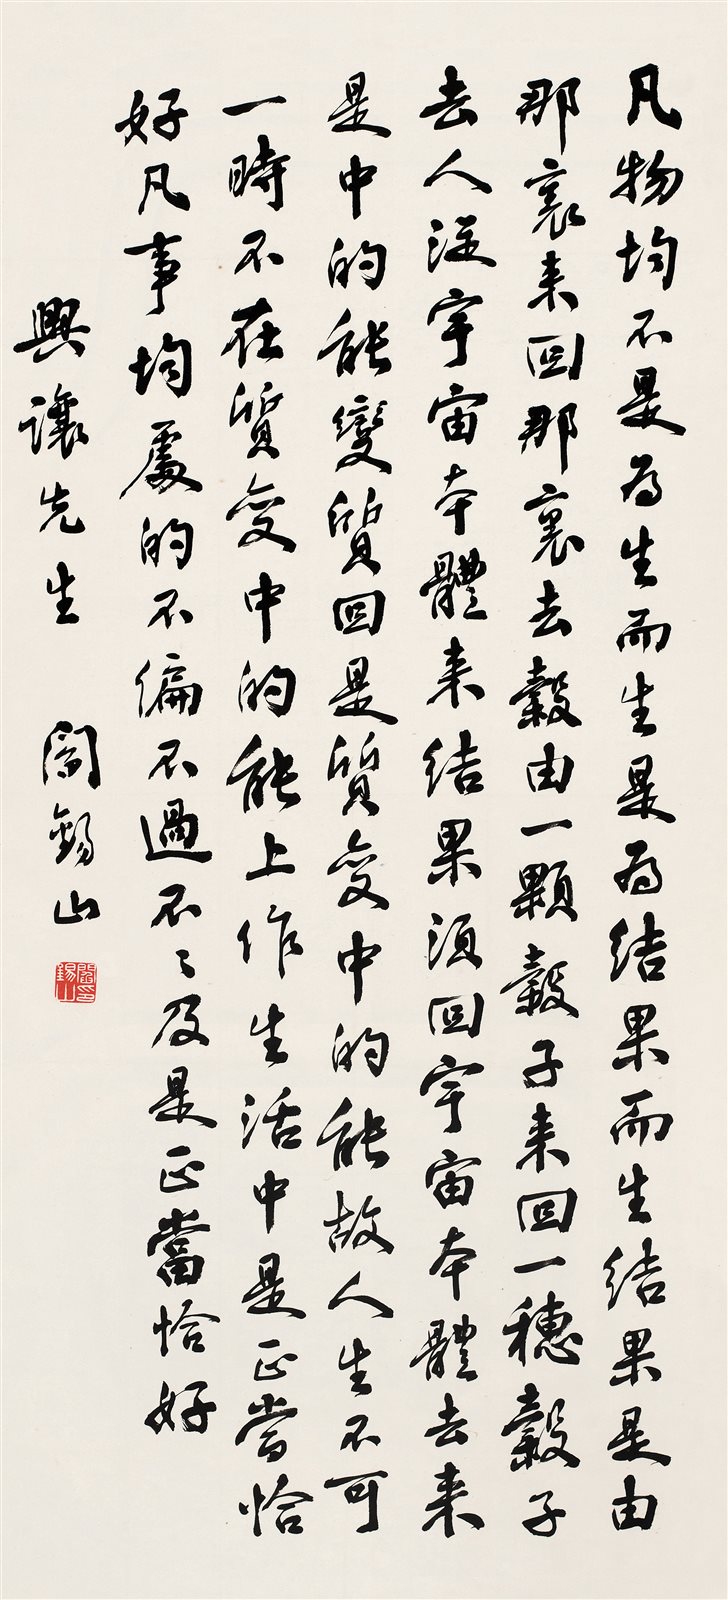 凡物均不是為生而生是為結果而生結果是由
那裏来回那裏去穀由一顆穀子来回一穗穀子
去人從宇宙本體来結果須回宇宙本體去来
是中的能變質回是質變中的能故人生不可
一時不在質變中的能上作生活中是正當恰
好凡事均處的不偏不過不々及是正當恰好
興讓先生　閻錫山
閻印錫山